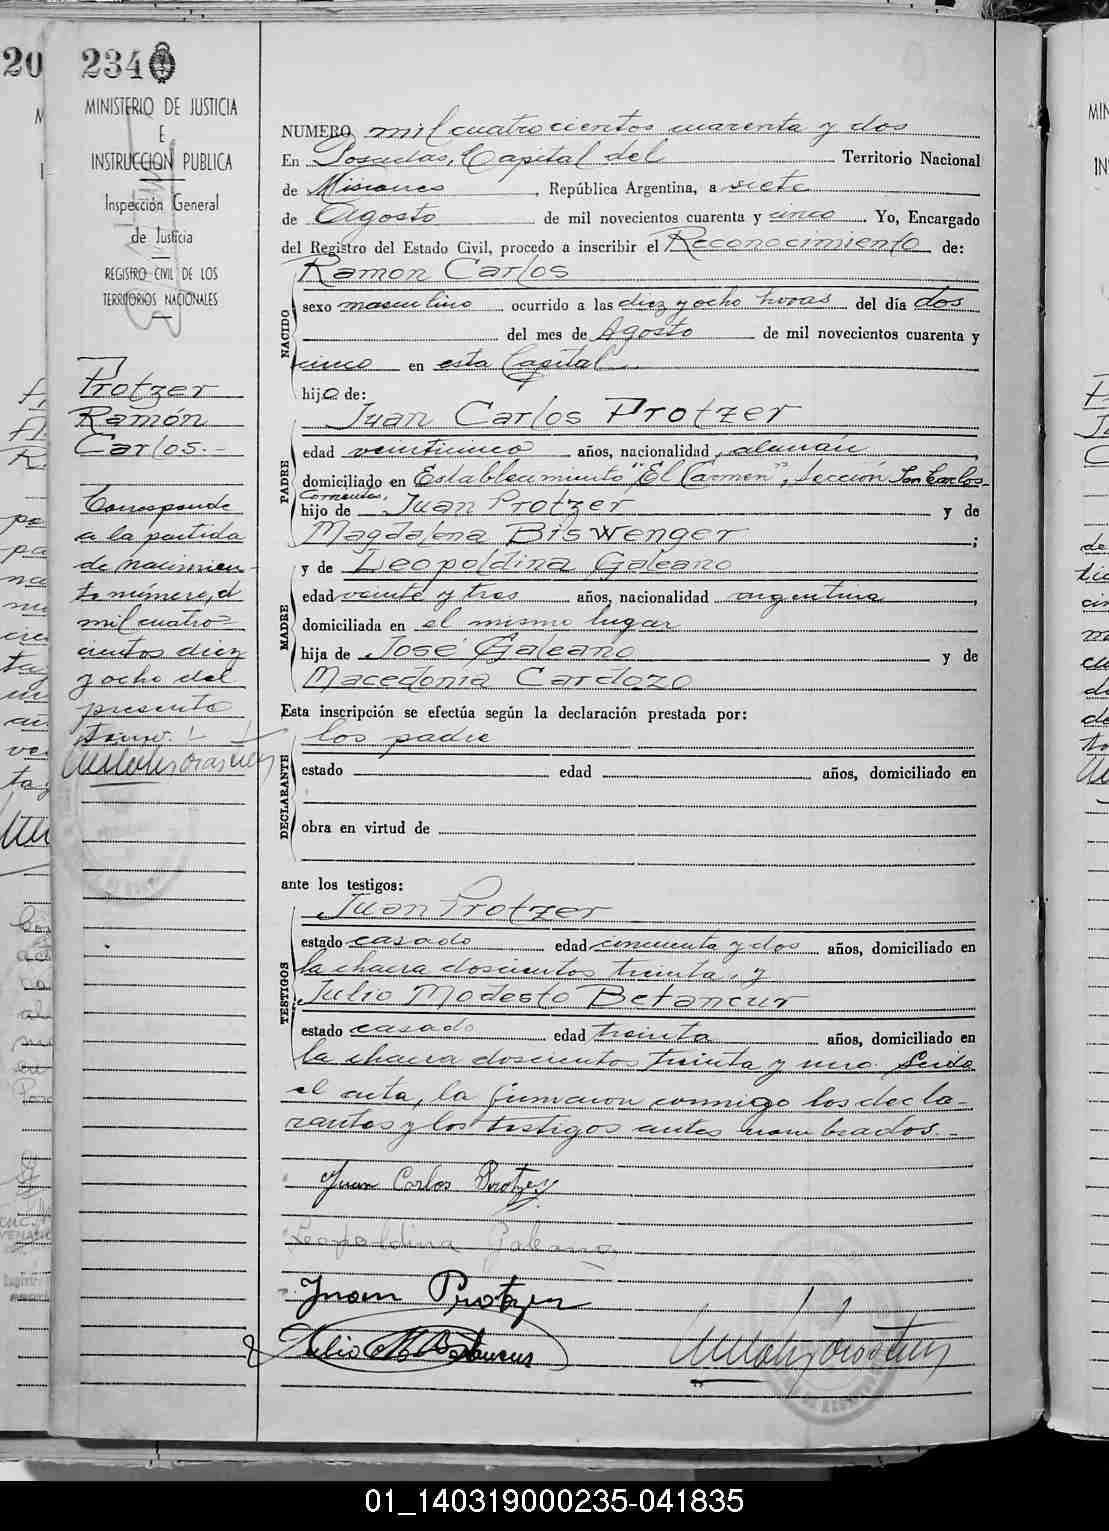 20
234
MINISTERIO DE JUSTICIA
E
INSTRUCCION PUBLICA
Inspección General
de Justicia
REGISTRO CIVIL DE LOS
TERRITORIOS NACIONALES
Protzer
Ramón
Carlos.-
Corresponde
a la partida
de nacimien-
to número, d
mil cuatro-
cientos diez
y ocho del
presente
tomo.
NUMERO mil cuatrocientos cuarenta y dos
En Posadas, Capital del Territorio Nacional
de Misiones, República Argentina, a siete
de Agosto de mil novecientos cuarenta y cinco Yo, Encargado
del Registro del Estado Civil, procedo a inscribir el Reconocimiento de:
Ramon Carlos
NACIDO
sexo masculino ocurrido a las diez y ocho horas del día dos
del mes de Agosto de mil novecientos cuarenta y
cinco en esta Capital
hijo de:
Juan Carlos Protzer
PADRE
edad veinticinco años, nacionalidad alemán,
domiciliado en Establecimiento "El Carmen", Sección San Carlos
Corrientes,
hijo de Juan Protzer y de
Magdalena Biswenger;
y de Leopoldina Galeano
MADRE
edad veinte y tres años, nacionalidad argentina,
domiciliada en el mismo lugar
hija de José Galeano y de
Macedonia Cardozo
Esta inscripción se efectúa según la declaración prestada por:
los padre
DECLARANTE
estado edad años, domiciliado en
obra en virtud de
ante los testigos:
Juan Protzer
TESTIGOS
estado casado edad cincuenta y dos años, domiciliado en
la chacra doscientos treinta, y
Julio Modesto Betancur
estado casado edad treinta años, domiciliado en
la chacra doscientos treinta y uno. Leida
el acta, la firmaron conmigo los decla-
rantes y los testigos antes nombrados.-
Juan Carlos Protzer
Leopoldina Galeano
Juan Protzer
Julio M Betancur
01_140319000235-041835